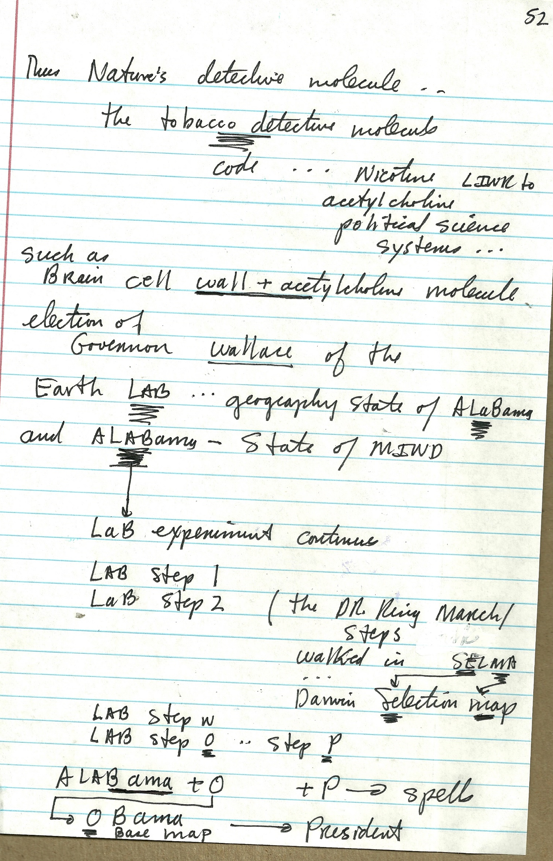 52
Thus Nature's detective molecule ..
the tobacco detective molecule
code ... Nicotine LINK to
acetylcholine
political science
systems ...
such as
Brain cell wall + acetylcholine molecule
election of
Governor wallace of the
Earth LAB ... geography State of ALaBama
and ALABama - State of MIND
LaB experiment continues
LAB Step 1
LaB Step 2 (the DR King March/
Steps
walked in SELMA
...
Darwin Selection map
LAB Step N
LAB Step O .. Step P
ALABama + O + P → spells
O Bama → President
Base map